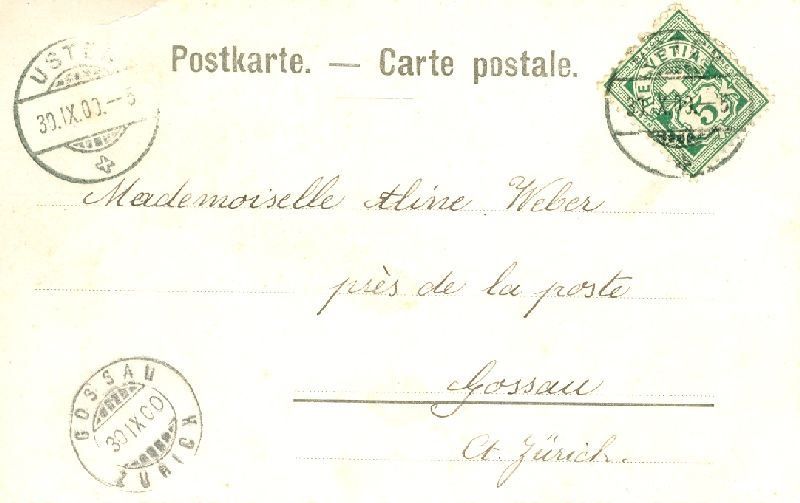 Postkarte. — Carte postale.
USTER
30.IX.00.–5
HELVETIA
5
30.IX.00.–5
Mademoiselle Aline Weber
près de la poste
Gossau
Ct. Zürich.
GOSSAU
30 IX 00
ZÜRICH